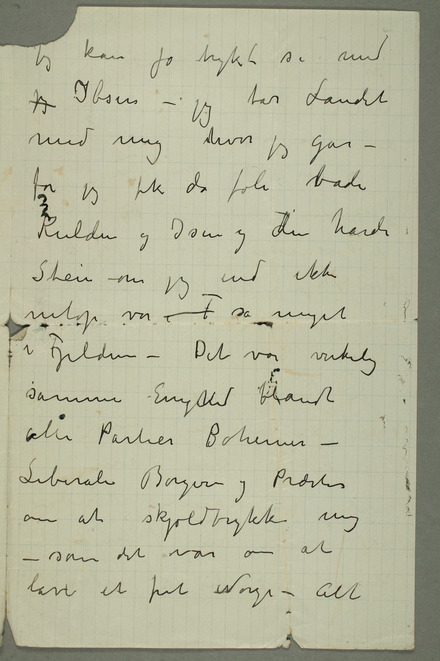 jeg kan jo trykt si med
jeg Ibsen – jeg tar Landet
med mig hvor jeg går –
for jeg fik da føle både
Kulden og Isen og den harde
Sten om jeg end ikke
netop var i F så meget
i Fjelden – Det var virkelig
samme Enighed blandt
alle Partier Bohemer –
Liberale Borgere og Præster
om at skjoldtrykke mig
– som det var om at
lave et frit Norge – Alt